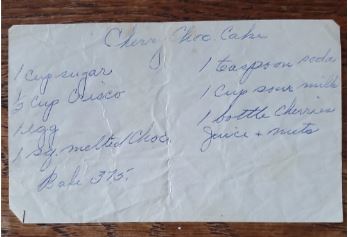 Cherry Choc. Cake
1 cup sugar
1/2 Cup Crisco
1 egg
1 sq. melted Choc.
Bake 375.
1 teaspoon soda
1 Cup sour milk
1 bottle Cherries
Juice + nuts